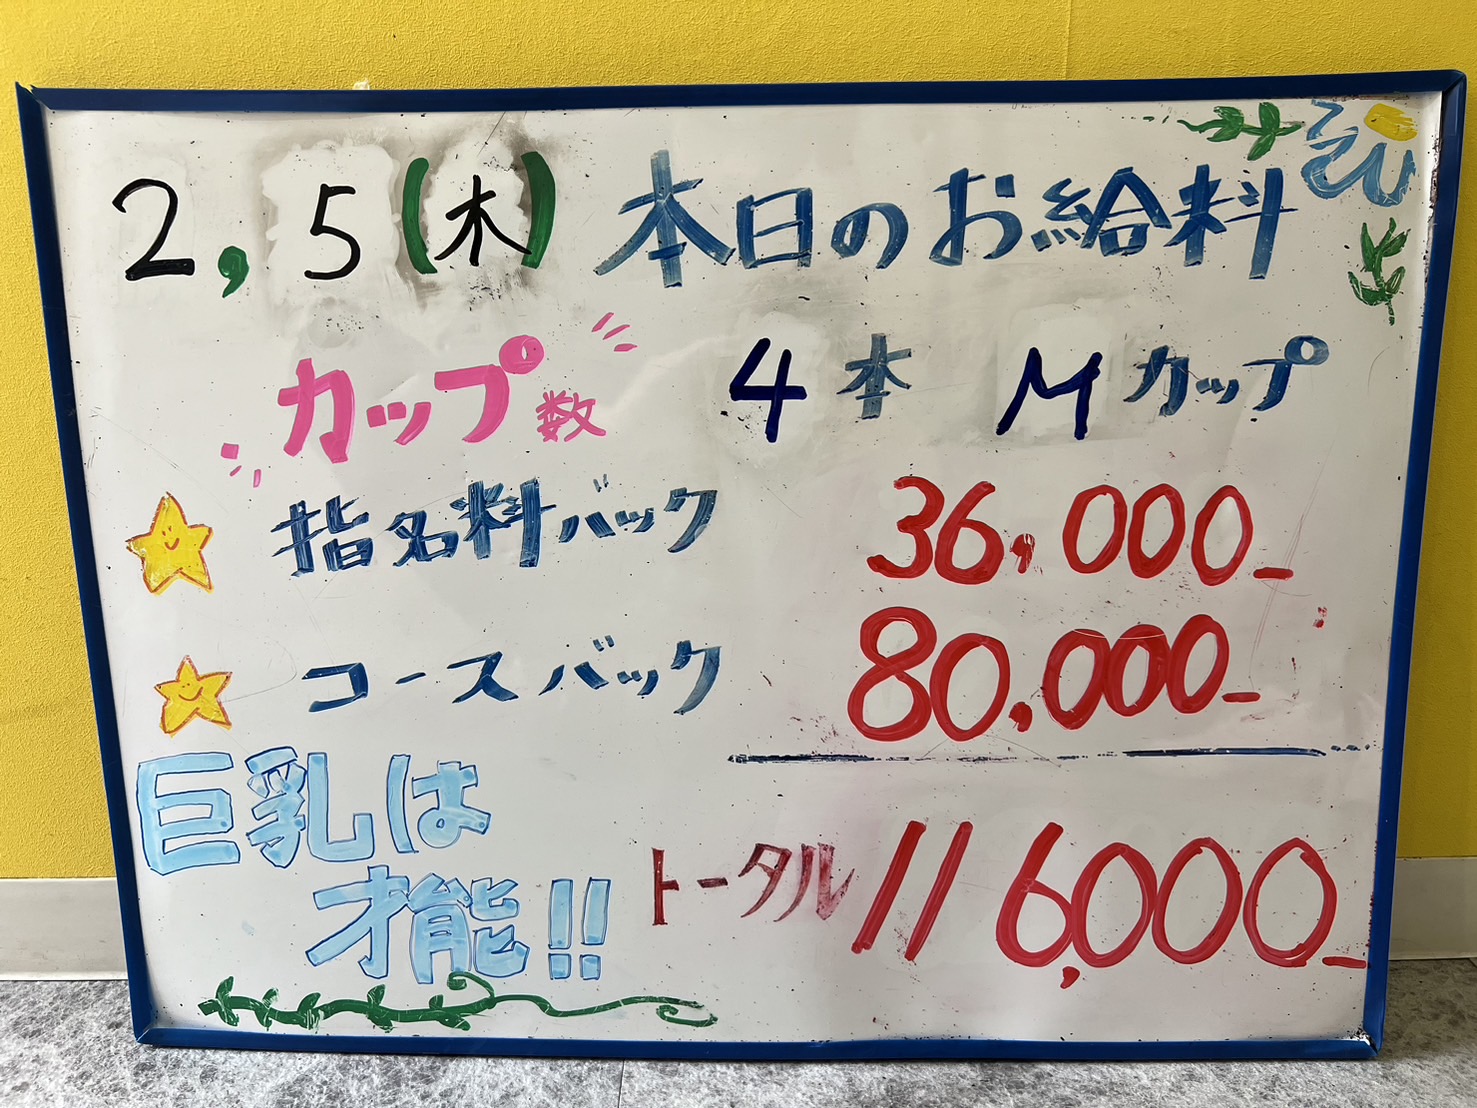 2,5(木) 本日のお給料
カップ数 4本 Mカップ
指名料バック 36.000-
コースバック 80.000-
巨乳は
才能!!
トータル 116,000-